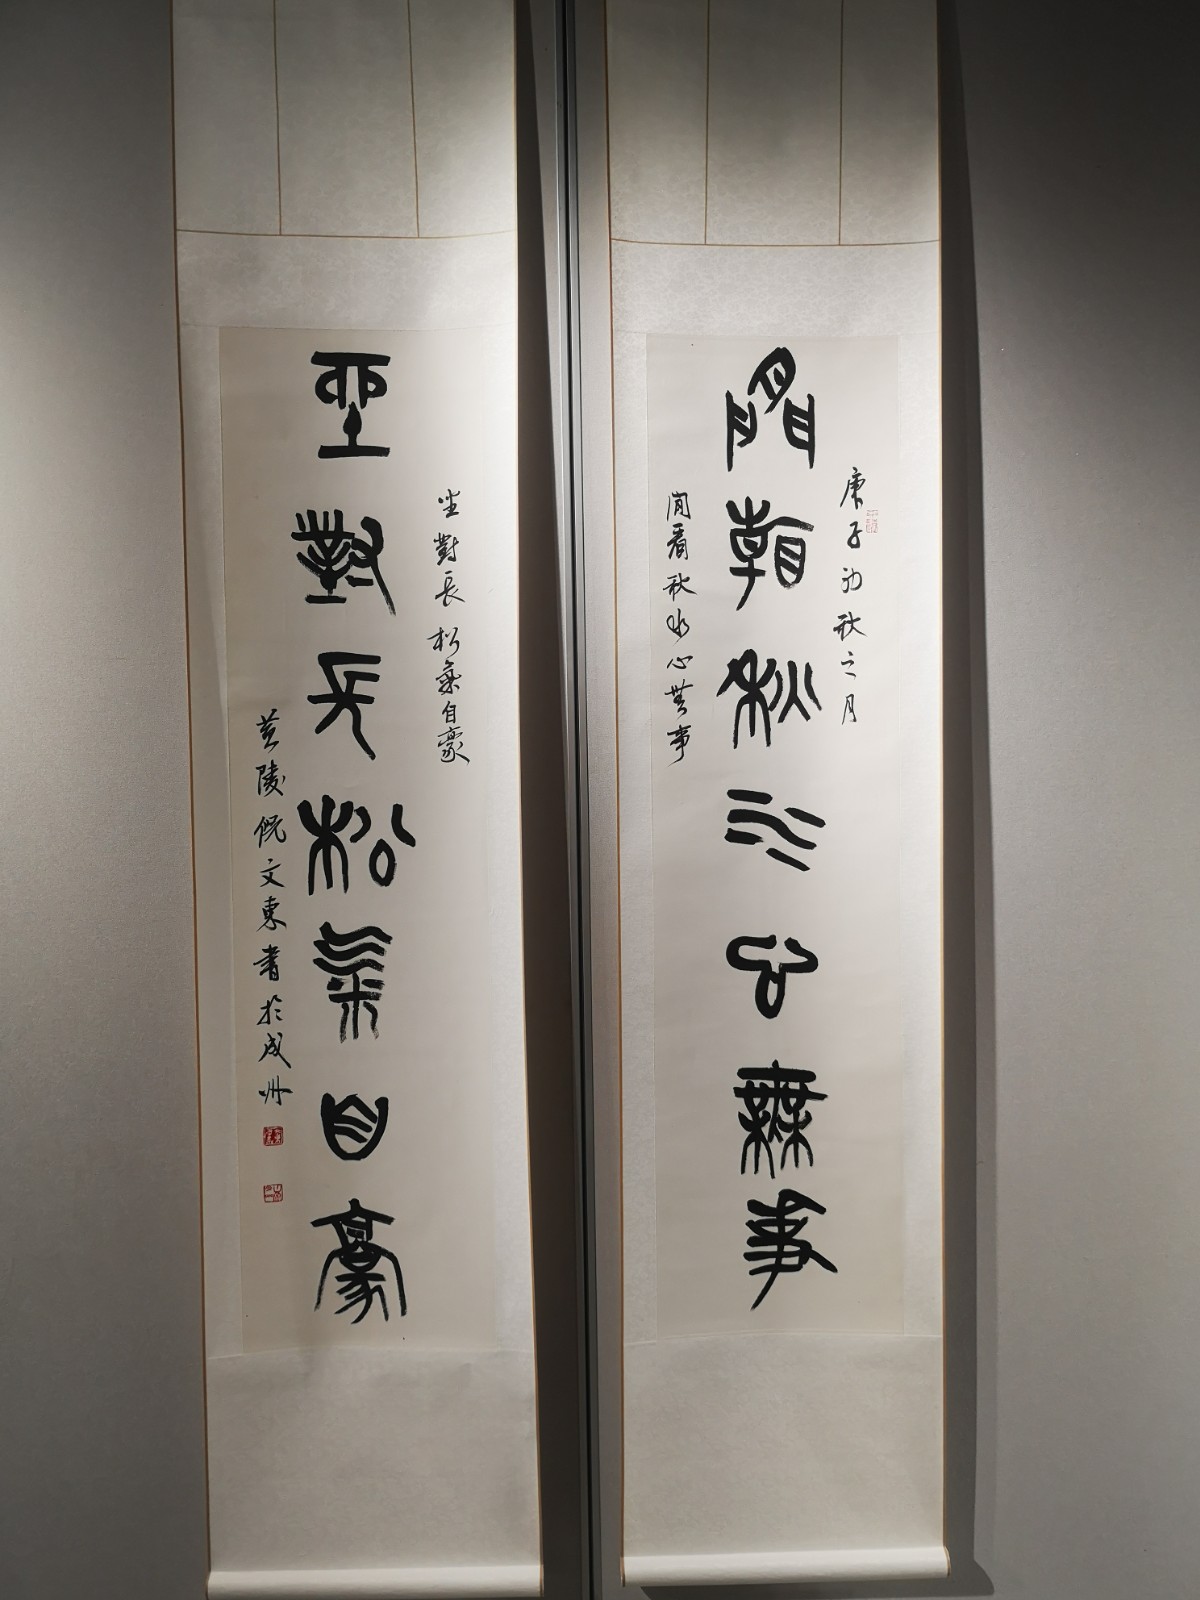 閒看秋水心無事
庚子初秋之月
閒看秋水心無事
坐對長松氣自豪
坐對長松氣自豪
文東書於成州